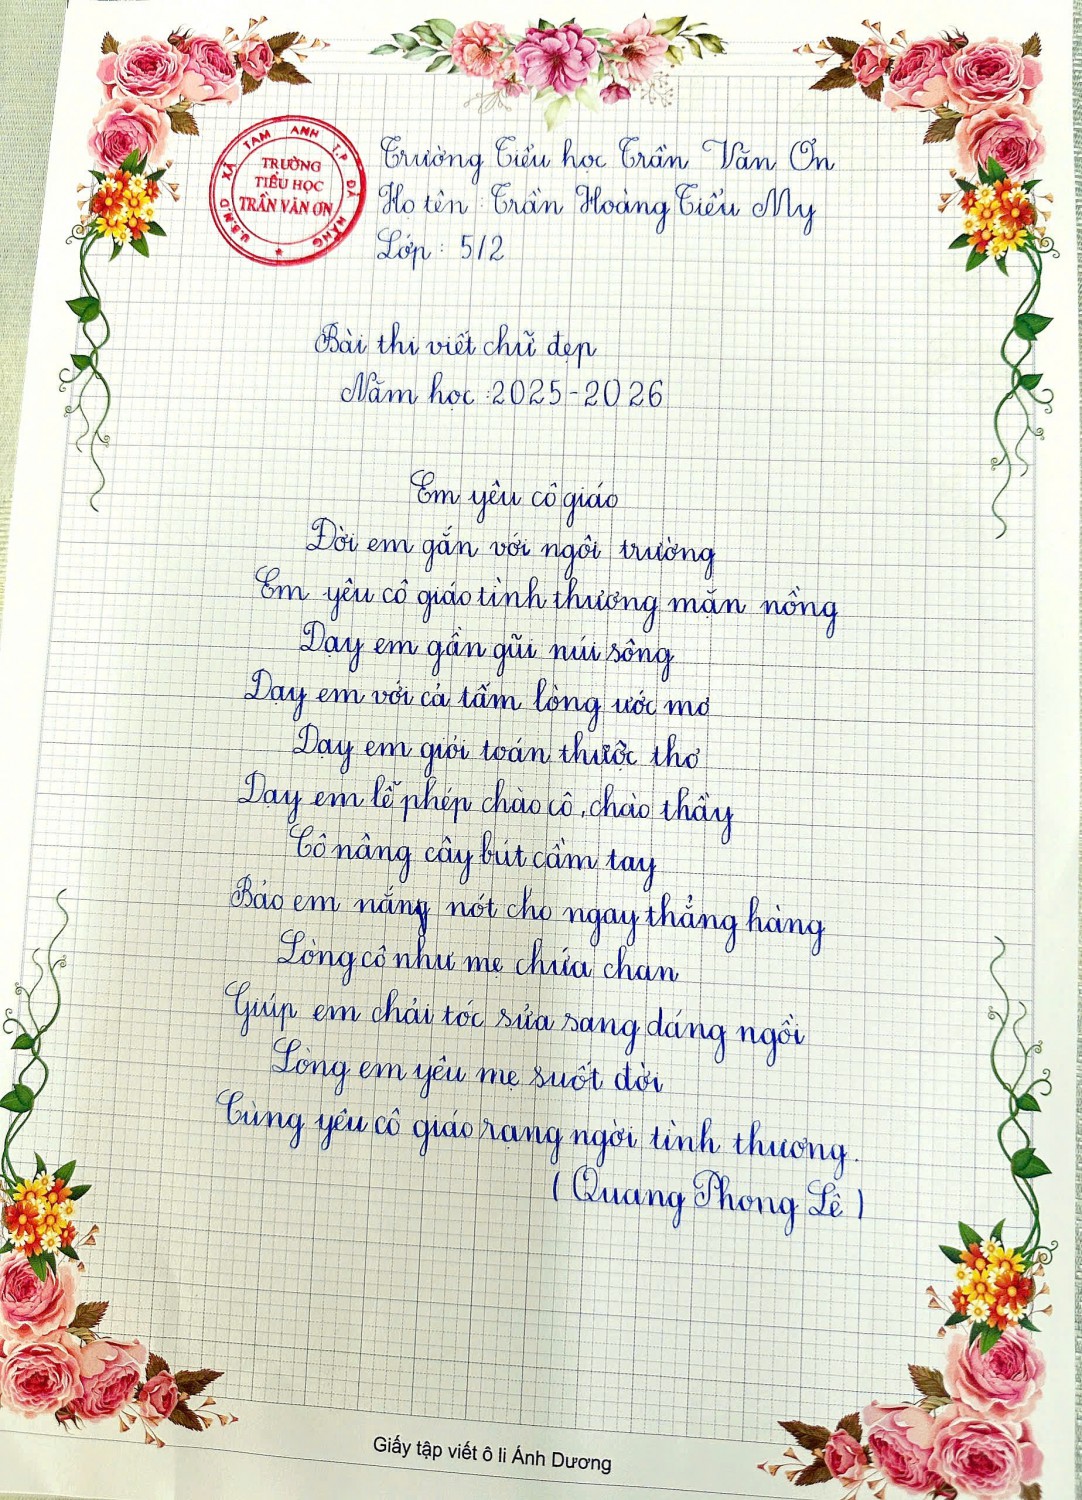 U.B.N.D XÃ TAM ANH T.P ĐÀ NẴNG
TRƯỜNG
TIỂU HỌC
TRẦN VĂN ƠN
Trường Tiểu học Trần Văn Ơn
Họ tên : Trần Hoàng Tiểu My
Lớp : 5/2
Bài thi viết chữ đẹp
Năm học : 2025-2026
Em yêu cô giáo
Đời em gắn với ngôi trường
Em yêu cô giáo tình thương mặn nồng
Dạy em gần gũi núi sông
Dạy em với cả tấm lòng ước mơ
Dạy em giỏi toán thuộc thơ
Dạy em lễ phép chào cô, chào thầy
Cô nâng cây bút cầm tay
Bảo em nắng nót cho ngay thẳng hàng
Lòng cô như mẹ chứa chan
Giúp em chải tóc sửa sang dáng ngồi
Lòng em yêu mẹ suốt đời
Cùng yêu cô giáo rạng ngời tình thương.
( Quang Phong Lê )
Giấy tập viết ô li Ánh Dương